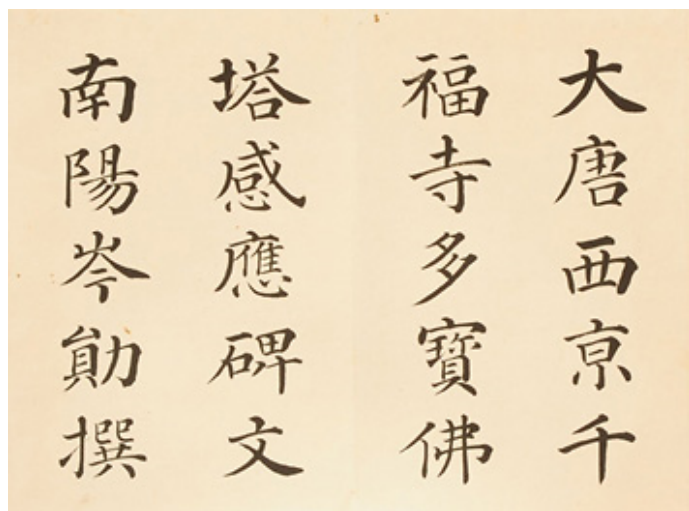 大唐西京千
福寺多寶佛
塔感應碑文
南陽岑勛撰